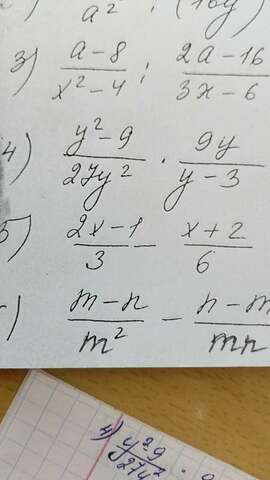 a²  : (16y)
3) (a-8)/(x²-4) : (2a-16)/(3x-6)
4) (y²-9)/(27y²) · (9y)/(y-3)
5) (2x-1)/3 - (x+2)/6
) (m-n)/m² - (n-m)/(mn)
4) (y²-9)/(27y²) ·